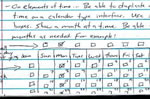 - On elements of time - Be able to duplicate
time on a calendar type interface. Use
boxes. Show a month at a time. Be able
months as needed for example:
Sun Mon Tues Wed Thurs Fri Sat